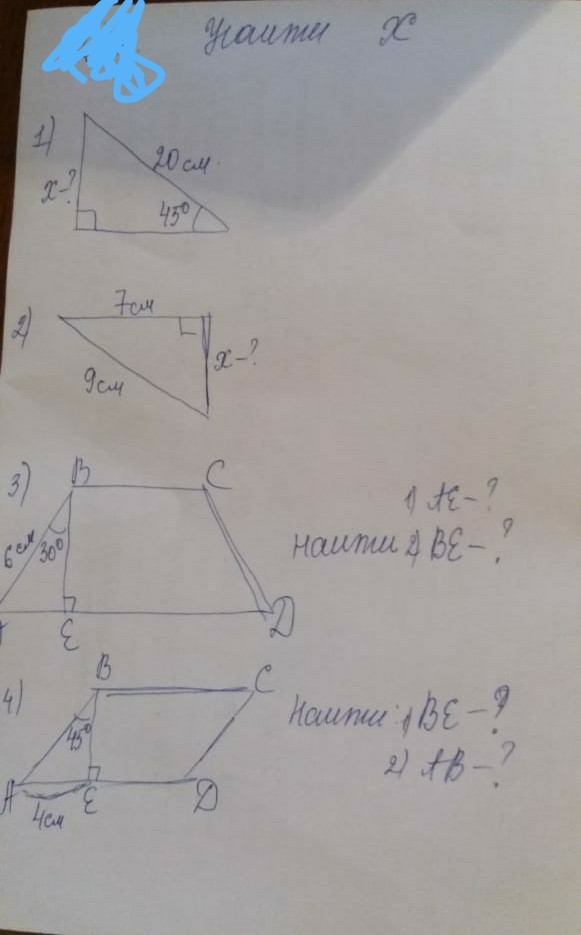 Найти X
1)
20 см.
x-?
45°
2)
7см
9см
x-?
3)
B C
6 см
30°
E D
1) AE-?
Найти 2) BE-?
4)
B C
45°
A E D
4см
Найти: 1) BE-?
2) AB-?